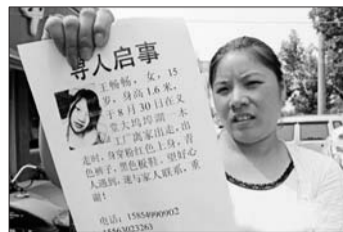 寻人启事
王畅畅，女，15
岁，身高1.6米，
于8月30日在义
堂大坞埠湖一木
工厂离家出走，出
走时，身穿粉红色上身，青
色裤子，黑色板鞋。望好心
人遇到，速与家人联系，重
谢！
电话：15854990902
15563023263